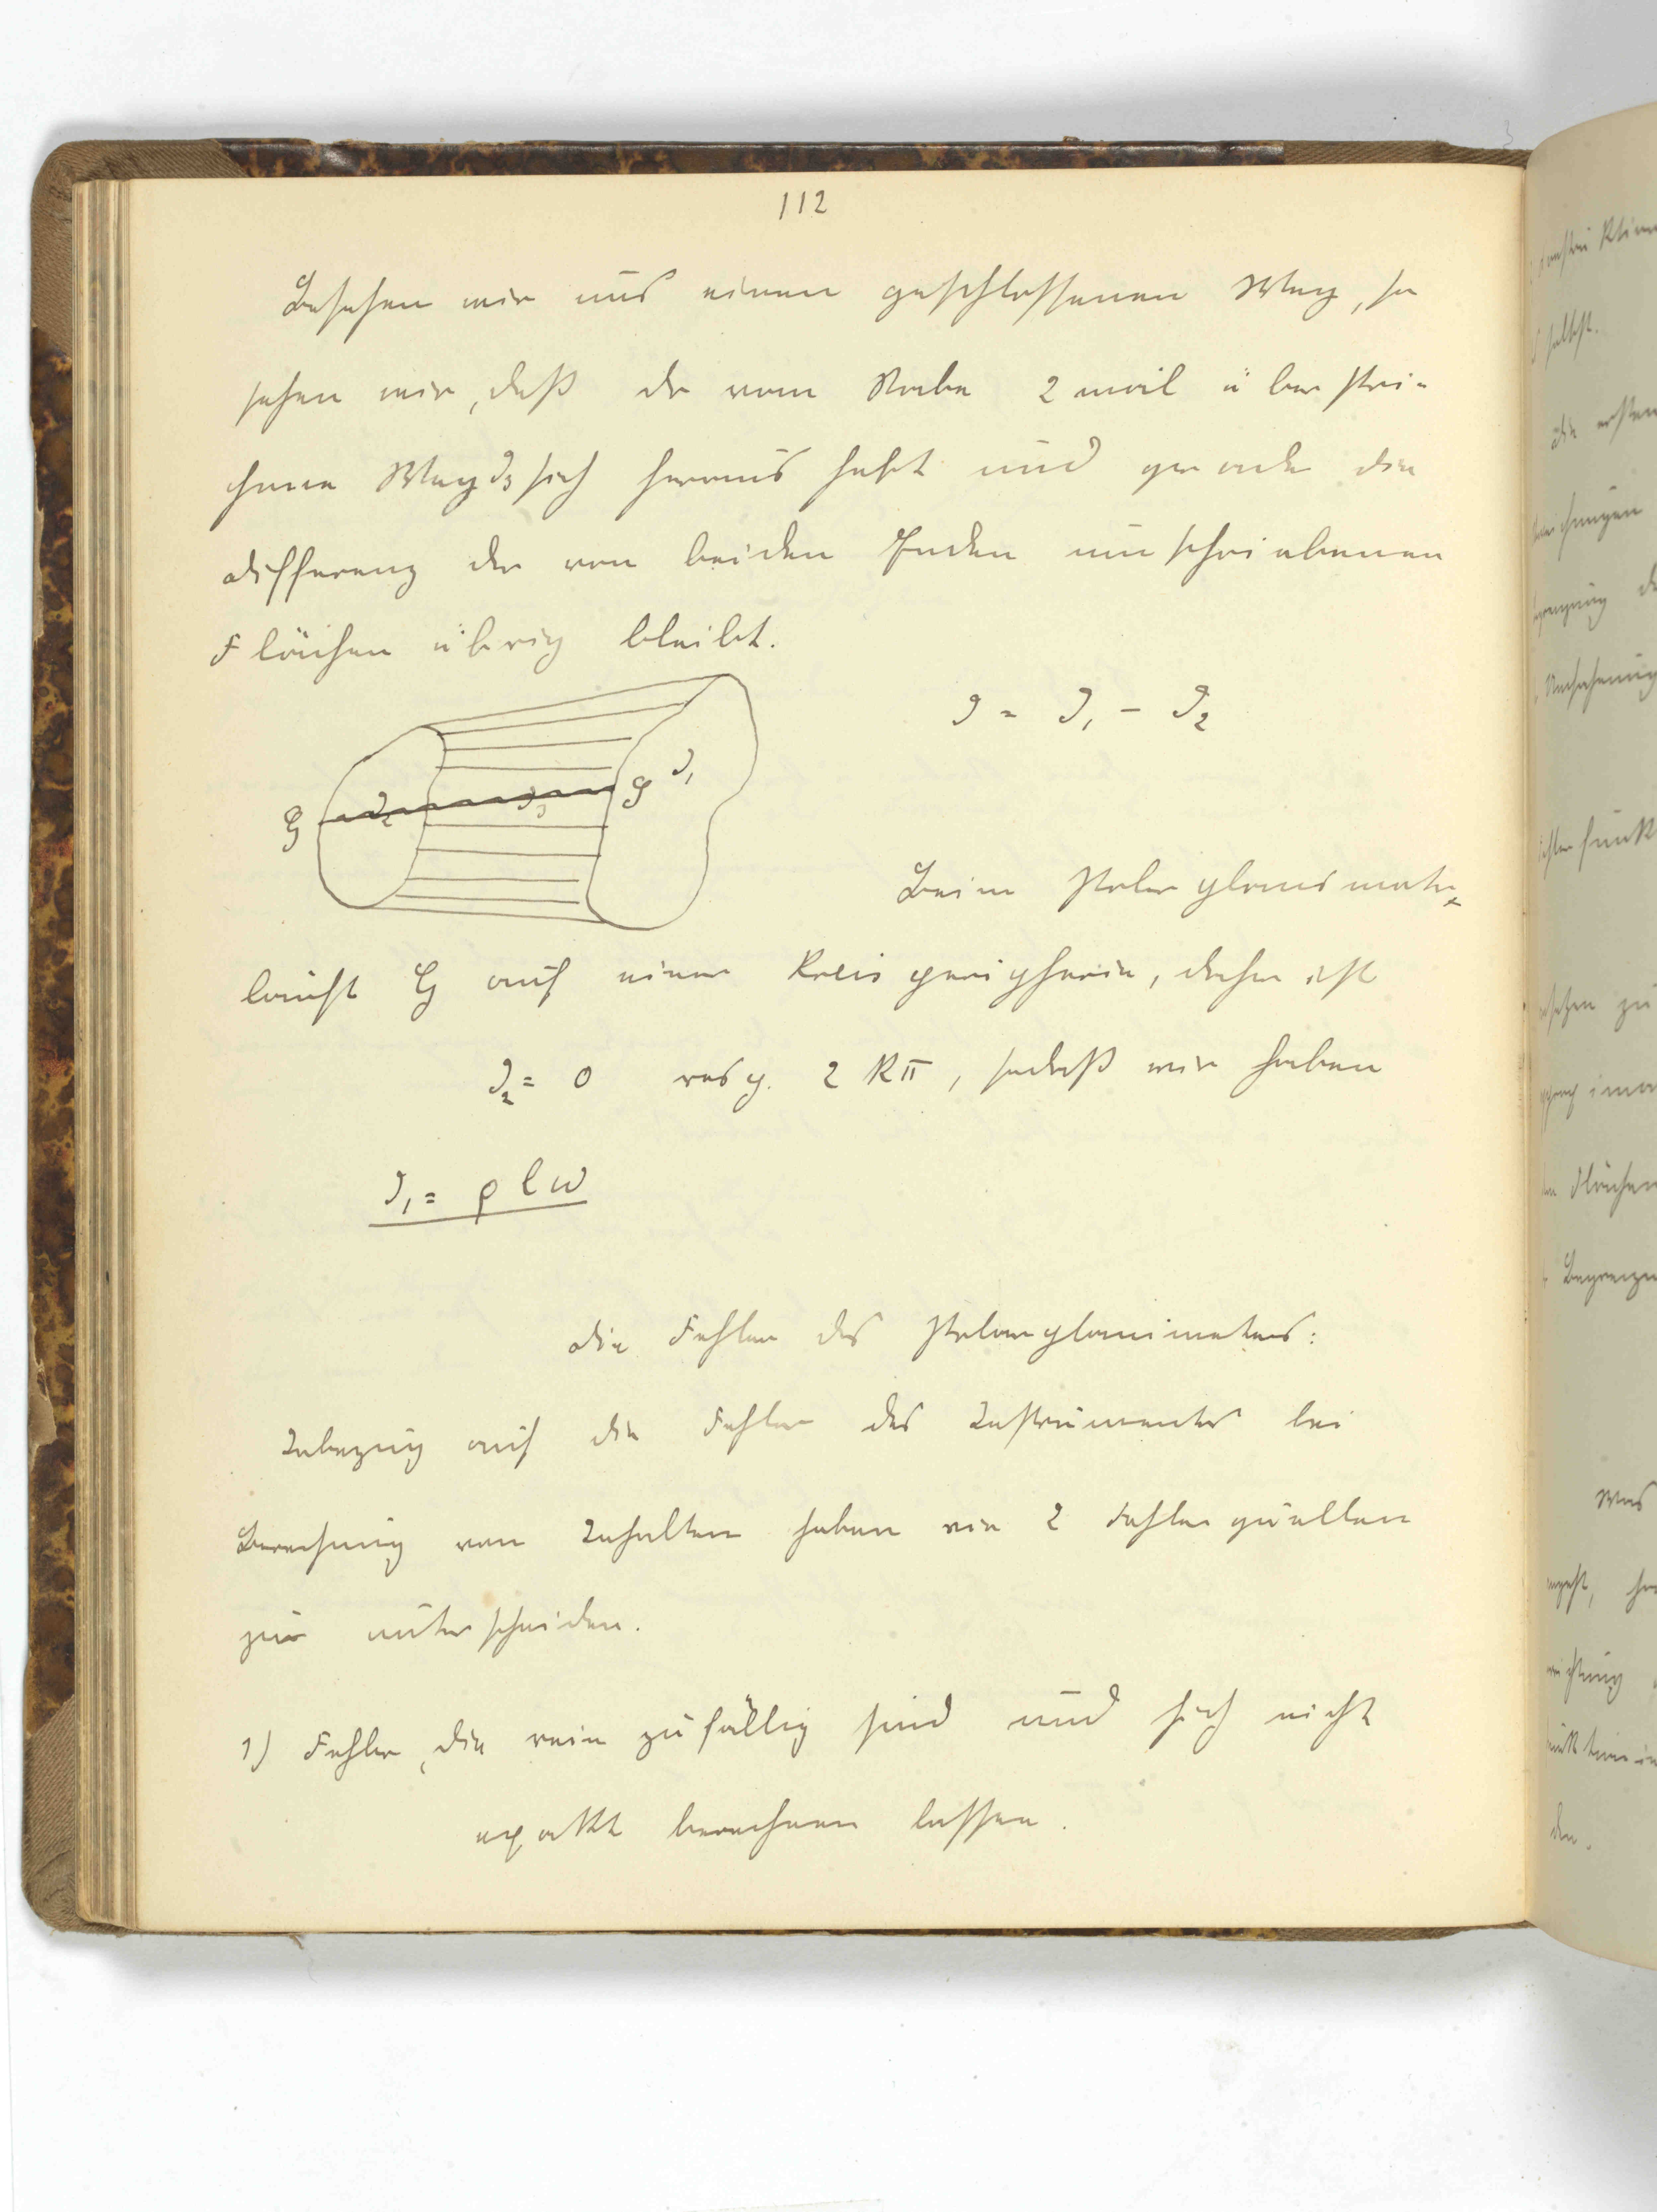 112
Besehen wir uns einen geschlossenen Weg, so
sehen wir, daß der vom Stabe 2 mal überstri-
chene Weg J₃ sich heraus hebt und gerade die
Differenz der von beiden Enden umschriebenen
Flächen übrig bleibt.
J = J₁ - J₂
J₁
G J₂ J₃ F
Beim Polarplanimeter
läuft G auf einer Kreisperipherie, daher ist
J₂ = 0 resp. 2Rπ, sodaß wir haben
J₁ = ρ l ω
Die Fehler des Polarplanimeters:
Inbezug auf die Fehler des Instrumentes bei
Berechnung von Inhalten haben wir 2 Fehlerquellen
zu unterscheiden.
1) Fehler, die rein zufällig sind und sich nicht
exakt berechnen lassen.
selbst.
die ersten
Flächen
Was